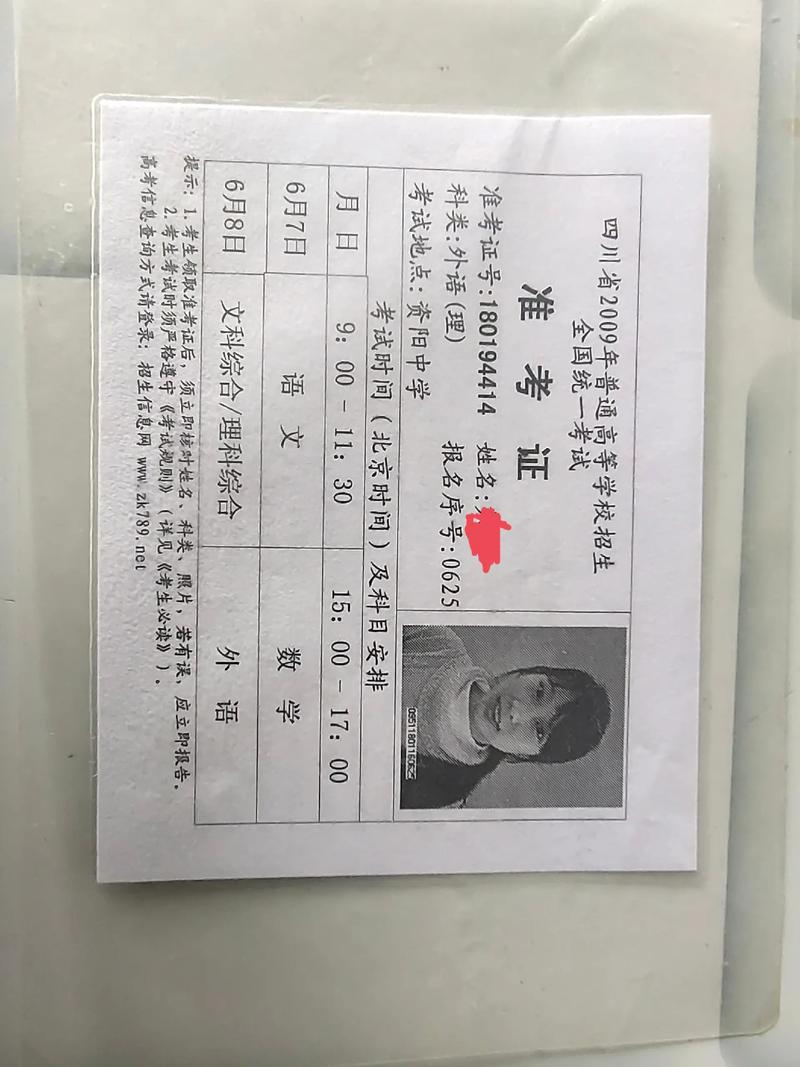 四川省2009年普通高等学校招生
全国统一考试
准 考 证
准考证号:180194414 姓名:
科类:外语(理) 报名序号:0625
考试地点:资阳中学
考试时间(北京时间)及科目安排
月 日 9:00-11:30 15:00-17:00
6月7日 语 文 数 学
6月8日 文科综合/理科综合 外 语
提示: 1.考生领取准考证后,须立即核对姓名、科类、照片,若有误,应立即报告。
2.考生考试时须严格遵守《考试规则》(详见《考生必读》)。
高考信息查询方式请登录: 招生信息网 www.zk789.net